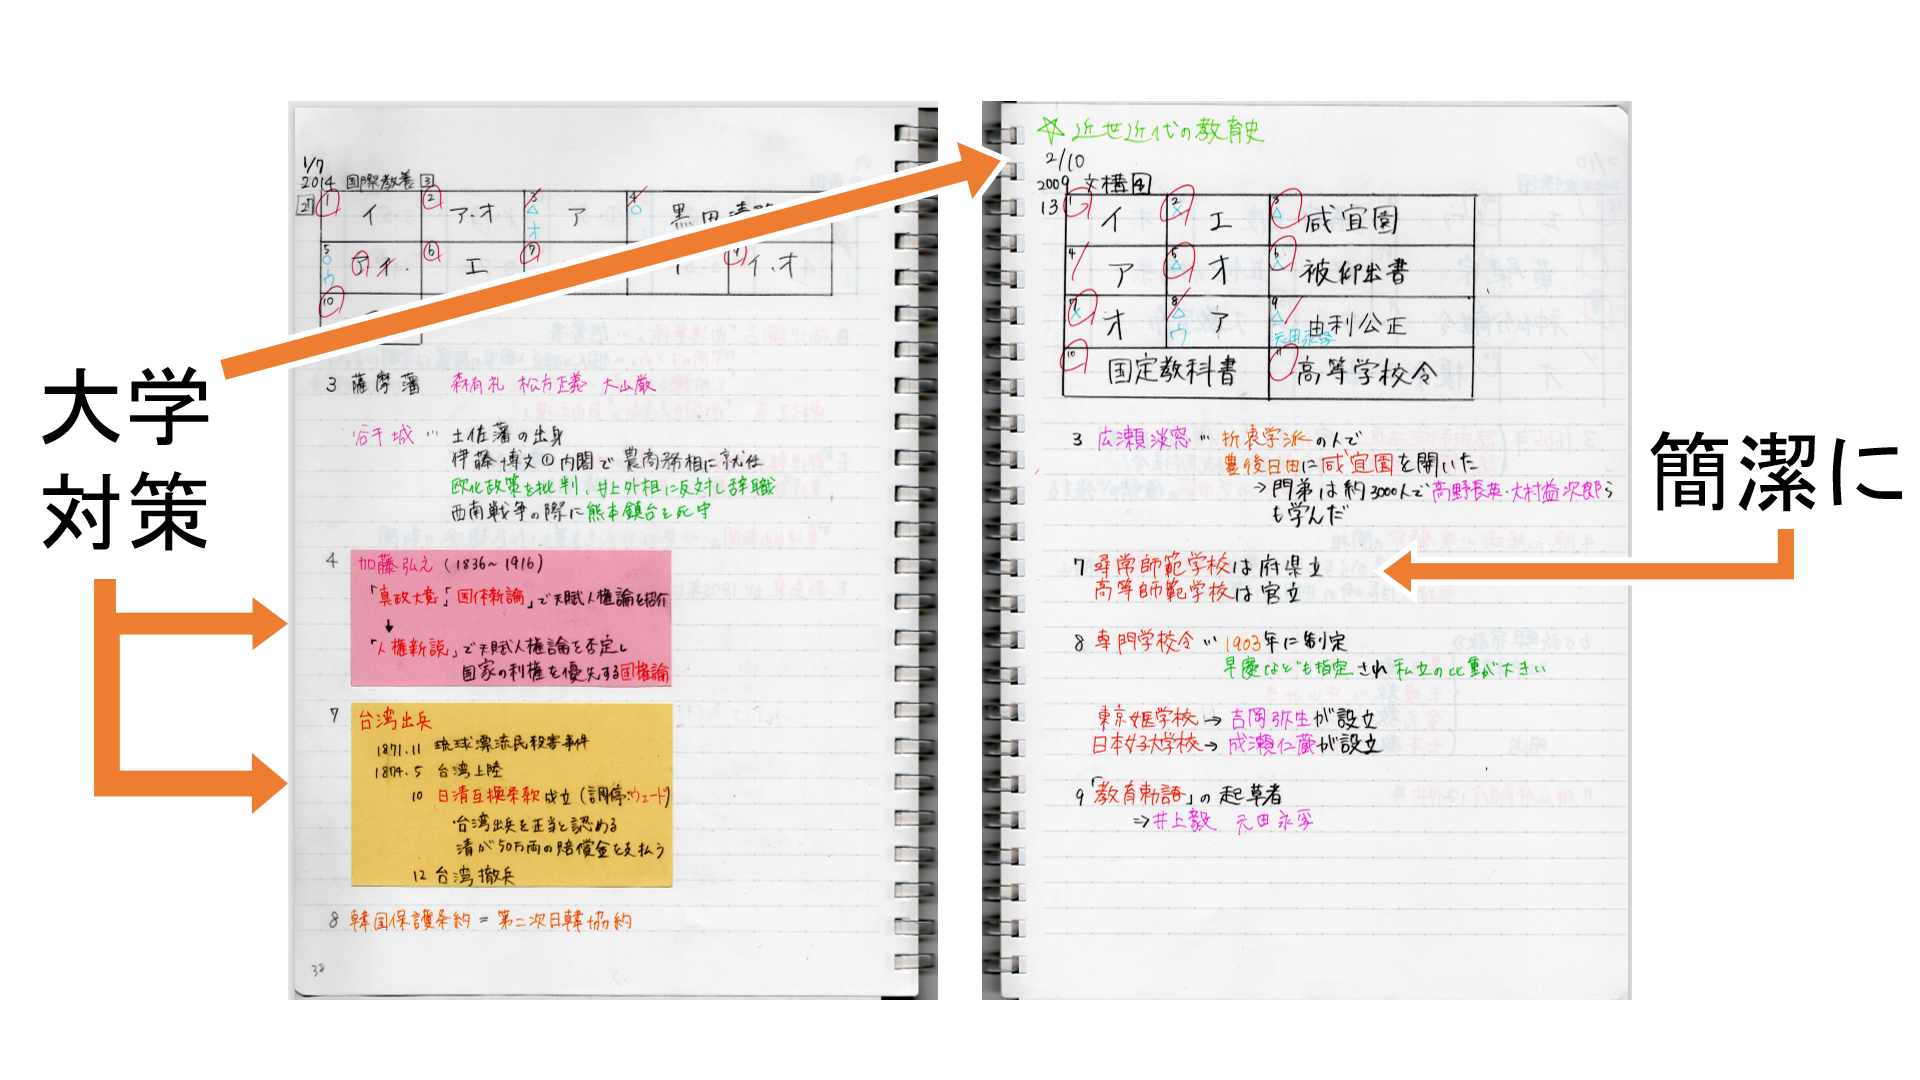 大学
対策
簡潔に
1/7
2014 国際教養 3
27
1 イ 2 ア・オ 3 △ オ ア 4 ○
5 ○ ウ 6 エ 7 9 イ.オ
10
3 薩摩藩 森有礼 松方正義 大山厳
谷干城 … 土佐藩の出身
伊藤博文①内閣で農商務相に就任
欧化政策を批判、井上外相に反対し辞職
西南戦争の際に熊本鎮台を死守
4 加藤弘之 (1836~1916)
「真政大意」「国体新論」で天賦人権論を紹介
↓
「人権新説」で天賦人権論を否定し
国家の利権を優先する国権論
7 台湾出兵
1871.11 琉球漂流民殺害事件
1874.5 台湾上陸
10 日清互換条款成立(調停:ウェード)
台湾出兵を正当と認める
清が50万両の賠償金を支払う
12 台湾撤兵
8 韓国保護条約 = 第二次日韓協約
38
☆ 近世近代の教育史
2/10
2009 文構 4
13
1 イ 2 × エ 3 △ 咸宜園
4 ア 5 △ オ 6 被仰出書
7 × オ 8 △ ウ ア 9 △ 元田永孚 由利公正
10 国定教科書 11 高等学校令
3 広瀬淡窓 … 折衷学派の人で
豊後日田に咸宜園を開いた
→ 門弟は約3000人で高野長英・大村益次郎ら
も学んだ
7 尋常師範学校は府県立
高等師範学校は官立
8 専門学校令 … 1903年に制定
早慶なども指定され私立の比重が大きい
東京女医学校 → 吉岡弥生が設立
日本女子大学校 → 成瀬仁蔵が設立
9 「教育勅語」の起草者
⇒井上毅 元田永孚